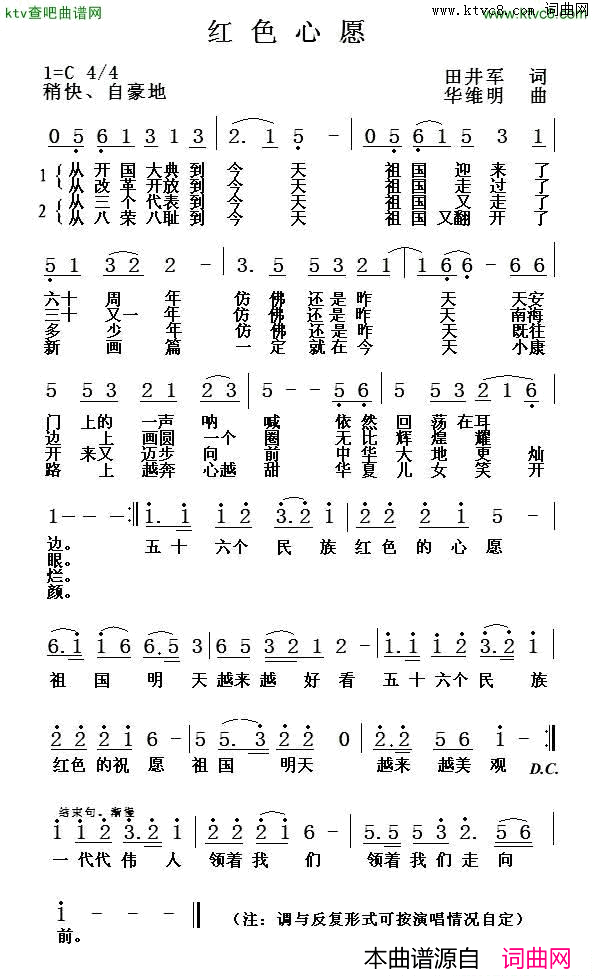 ktv查吧曲谱网
www.ktvc8.com 词曲网
红色心愿
1=C 4/4
稍快、自豪地
田井军 词
华维明 曲
0 5 6 1 3 1 3 | 2. 1 5 - | 0 5 6 1 5 3 1 |
1 从开国大典到今天 祖国迎来了
从改革开放到今天 祖国走过了
2 从三个代表到今天 祖国又走了
从八荣八耻到今天 祖国又翻开了
5 1 3 2 2 - | 3. 5 5 3 2 1 | 1 6 6 - 6 5 |
六十周年 仿佛还是昨天 天安
三十又一年 仿佛还是昨天 南海
多少年 仿佛还是昨天 既往
新画篇 一定就在今天 小康
5 5 3 2 1 2 3 | 5 - - 5 6 | 5 5 3 2 1 6 |
门上的一声呐喊 依然回荡在耳
边上画圆一个圈 无比辉煌耀
开来又迈步向前 中华大地更灿
路上越奔心越甜 华夏儿女笑开
1 - - - :‖ 1. 1 1 2 3. 2 1 | 2 2 2 1 5 - |
边。 五十六个民族红色的心愿
眼。
烂。
颜。
6. 1 1 6 6. 5 3 | 6 5 3 2 1 2 - | 1. 1 1 2 3. 2 1 |
祖国明天越来越好看 五十六个民族
2 2 2 1 6 - | 5 5. 3 2 2 0 | 2. 2 5 6 1 - :‖
红色的祝愿 祖国明天 越来越美观 D.C.
结束句。渐慢
1 1 2 3. 2 1 | 2 2 2 1 6 - | 5. 5 5 3 2. 5 6 |
一代代伟人 领着我们 领着我们走向
1 - - - ‖ (注：调与反复形式可按演唱情况自定)
前。
本曲谱源自 词曲网